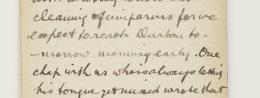 cleaning of uniforms for we
expect to reach Durban to-
morrow morning early. One
chap with us who is always letting
his tongue get nursed wrote that